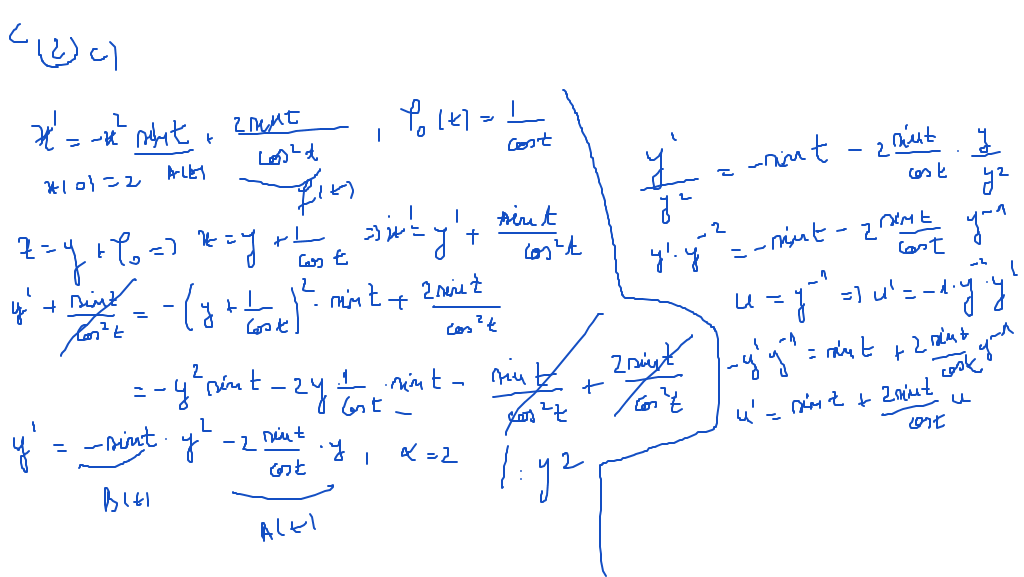 (2) c)
x' = -x² sin t + 2 sin t / cos² t , φ₀(t) = 1 / cos t
x(0) = 2 A(t) f(t)
x = y + φ₀ => x = y + 1 / cos t => x' = y' + sin t / cos² t
y' + sin t / cos² t = -(y + 1 / cos t)² · sin t + 2 sin t / cos² t
= -y² sin t - 2y 1 / cos t · sin t - sin t / cos² t + 2 sin t / cos² t
y' = -sin t · y² - 2 sin t / cos t · y , α = 2 | : y²
B(t) A(t)
y' / y² = -sin t - 2 sin t / cos t · y / y²
y' · y⁻² = -sin t - 2 sin t / cos t y⁻¹
u = y⁻¹ => u' = -1 · y⁻² · y'
-y' y⁻¹ = sin t + 2 sin t / cos t y⁻¹
u' = sin t + 2 sin t / cos t u